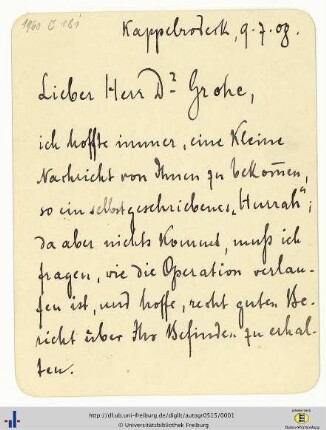 Kappelrodeck, 9.7.08.
Lieber Herr Dr Grohe,
ich hoffte immer, eine kleine
Nachricht von Ihnen zu bekom̄en,
so ein selbstgeschriebenes „Hurrah";
da aber nichts kommt, muß ich
fragen, wie die Operation verlau-
fen ist, und hoffe, recht guten Be-
richt über Ihr Befinden zu erhal-
ten.
http://dl.ub.uni-freiburg.de/diglit/autogr0515/0001
© Universitätsbibliothek Freiburg